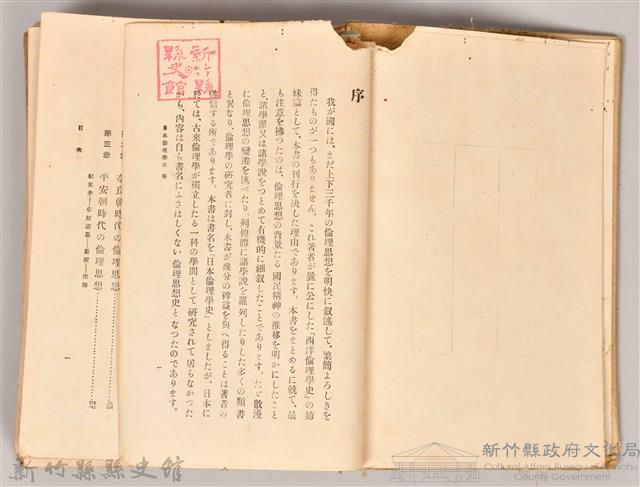 序
我が國には、まだ上下三千年の倫理思想を明快に叙述して、繁簡よろしきを
得たものが一つもありません。これ著者が曩に公にした「西洋倫理學史」の姉
妹篇として、本書の刊行を決した理由であります。本書をまとめるに就て、最
も注意を拂つたのは、倫理思想の背景たる國民精神の推移を明かにしたこと
と、諸學派又は諸學說をつとめて有機的に細叙したことであります。たゞ散漫
に倫理思想の變遷を述べたり、列傳體に諸學說を羅列したりした多くの類書
と異なり、倫理學の研究者に對し、本書が幾分の裨益を與へ得ることは著者の
信する所であります。本書は書名を「日本倫理學史」としましたが、日本に
ては、古來倫理學が獨立したる一科の學問として研究されて居らなかつた
から、內容は自ら書名にふさはしくない倫理思想史となつたのであります。
日本倫理學史 序
一
奈良朝時代の倫理思想
第三章 平安朝時代の倫理思想
目次
一
新竹縣
縣史館
新竹縣縣史館
新竹縣政府文化局
Cultural Affairs Bureau of Hsinchu
County Government